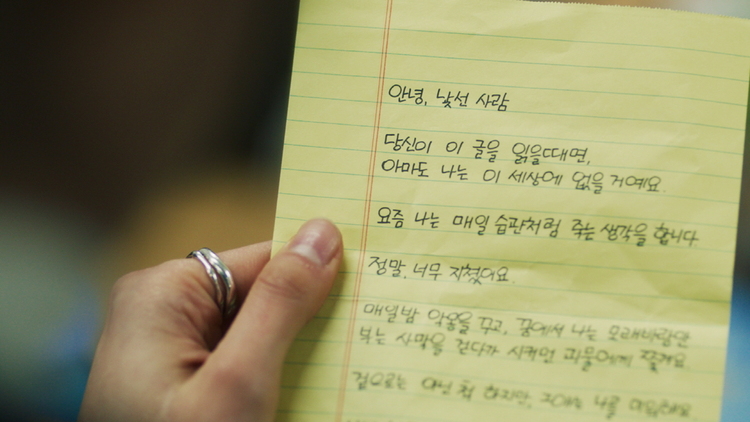 안녕, 낯선 사람
당신이 이 글을 읽을때면,
아마도 나는 이 세상에 없을거예요.
요즘 나는 매일 습관처럼 죽는 생각을 합니다
정말, 너무 지쳤어요.
매일밤 악몽을 꾸고, 꿈에서 나는 모래바람만
부는 사막을 걷다가 시커먼 괴물에게 쫓겨요.
겉으로는 아닌 척 하지만, 그애는 나를 미워해요.